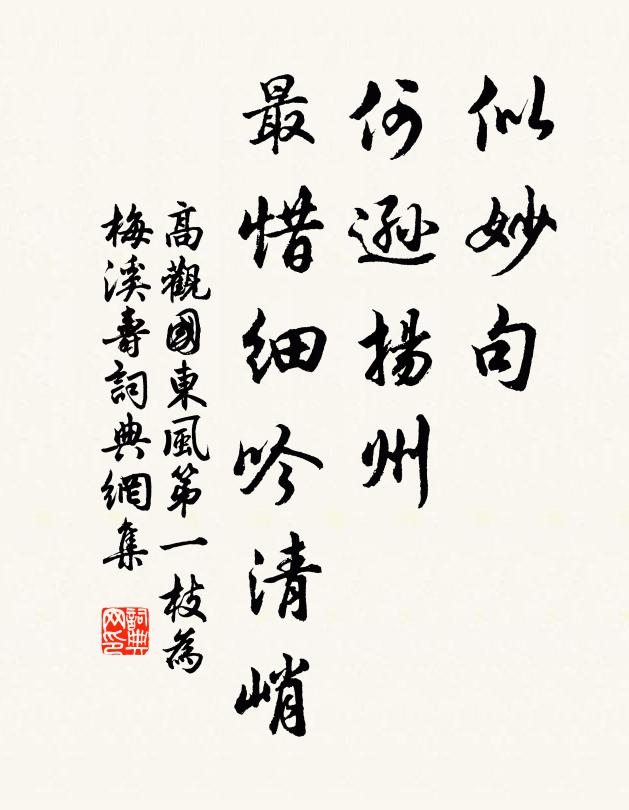 似妙句
何遜揚州
最惜細吟清峭
高觀國東風第一枝為
梅溪壽詞典網集
詞典
网印